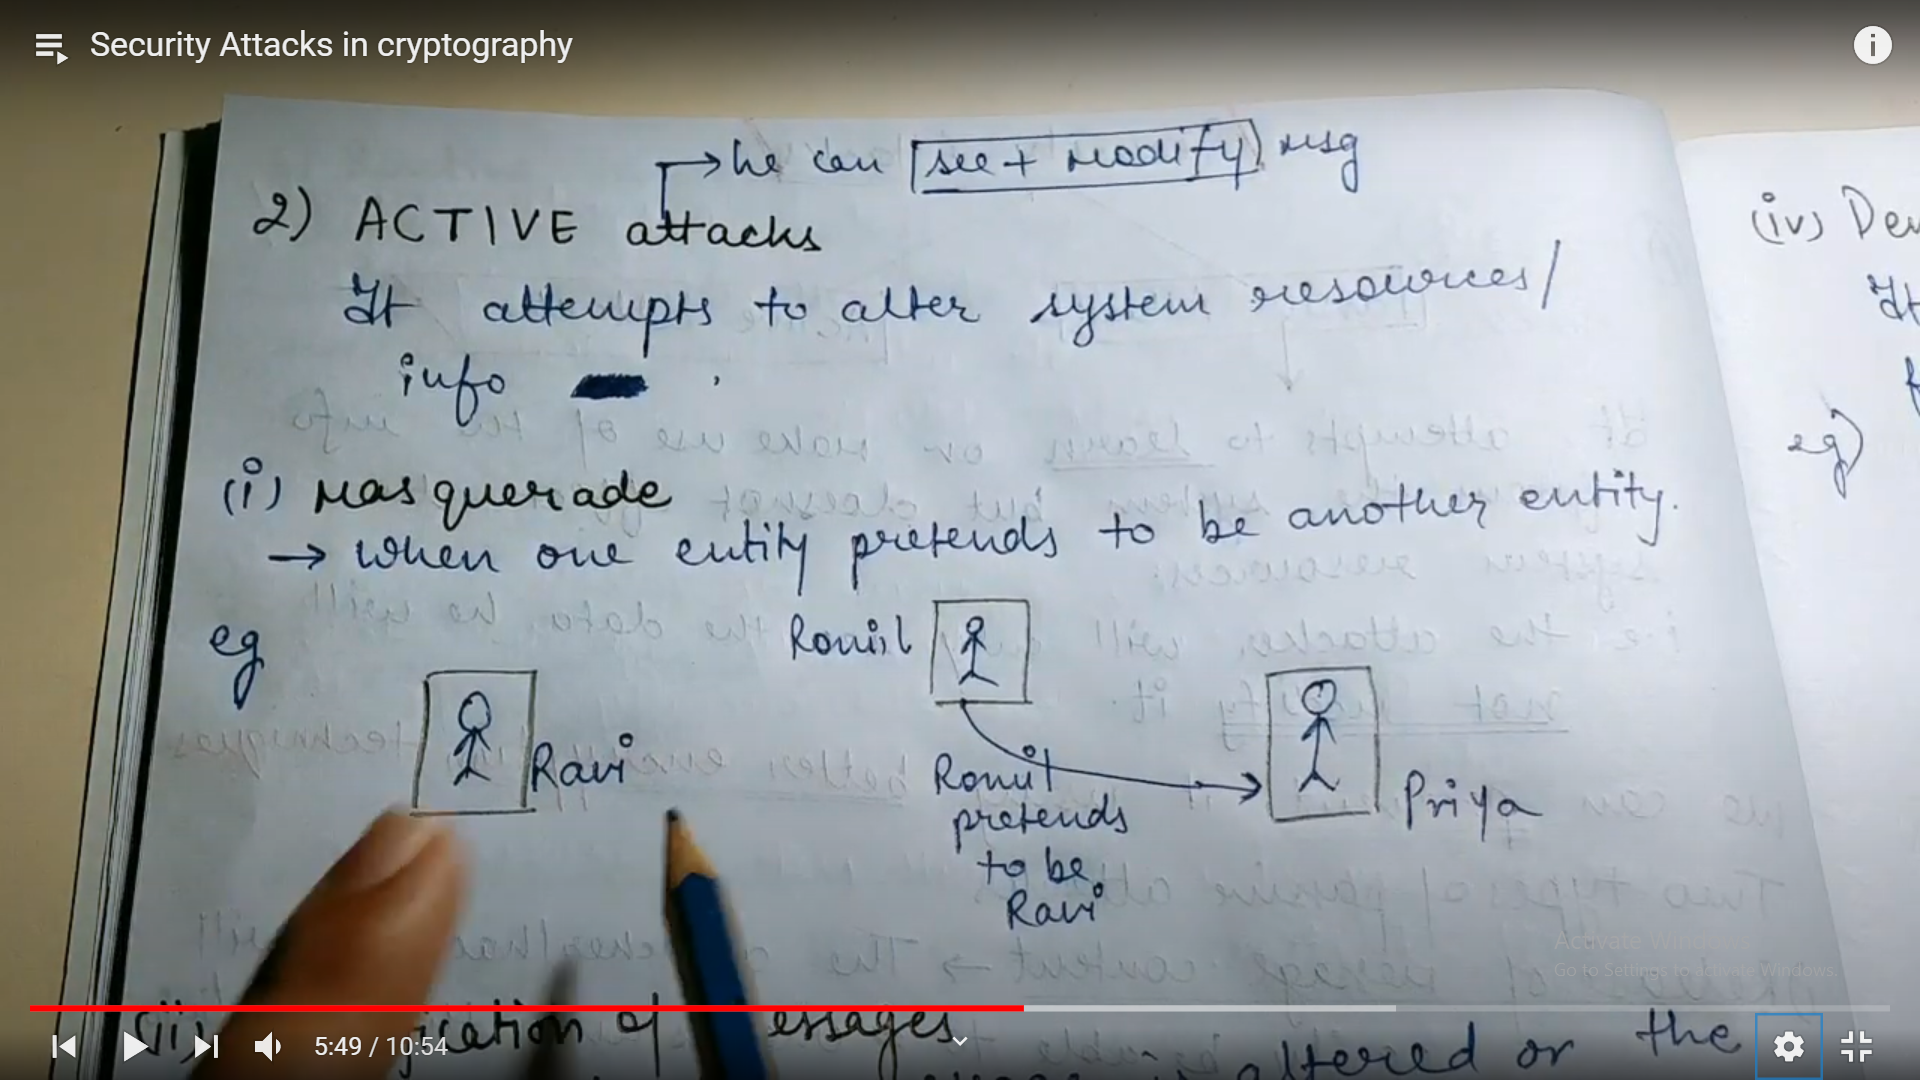 Security Attacks in cryptography
he can see + modify msg
2) ACTIVE attacks
It attempts to alter system resources/
info
(i) Masquerade
→ when one entity pretends to be another entity.
eg
Ravi
Priya
pretends
to be
Ravi
(ii) ication of essages
altered or the
(iv) Den
It
eg)
Activate Windows
Go to Settings to activate Windows.
5:49 / 10:54